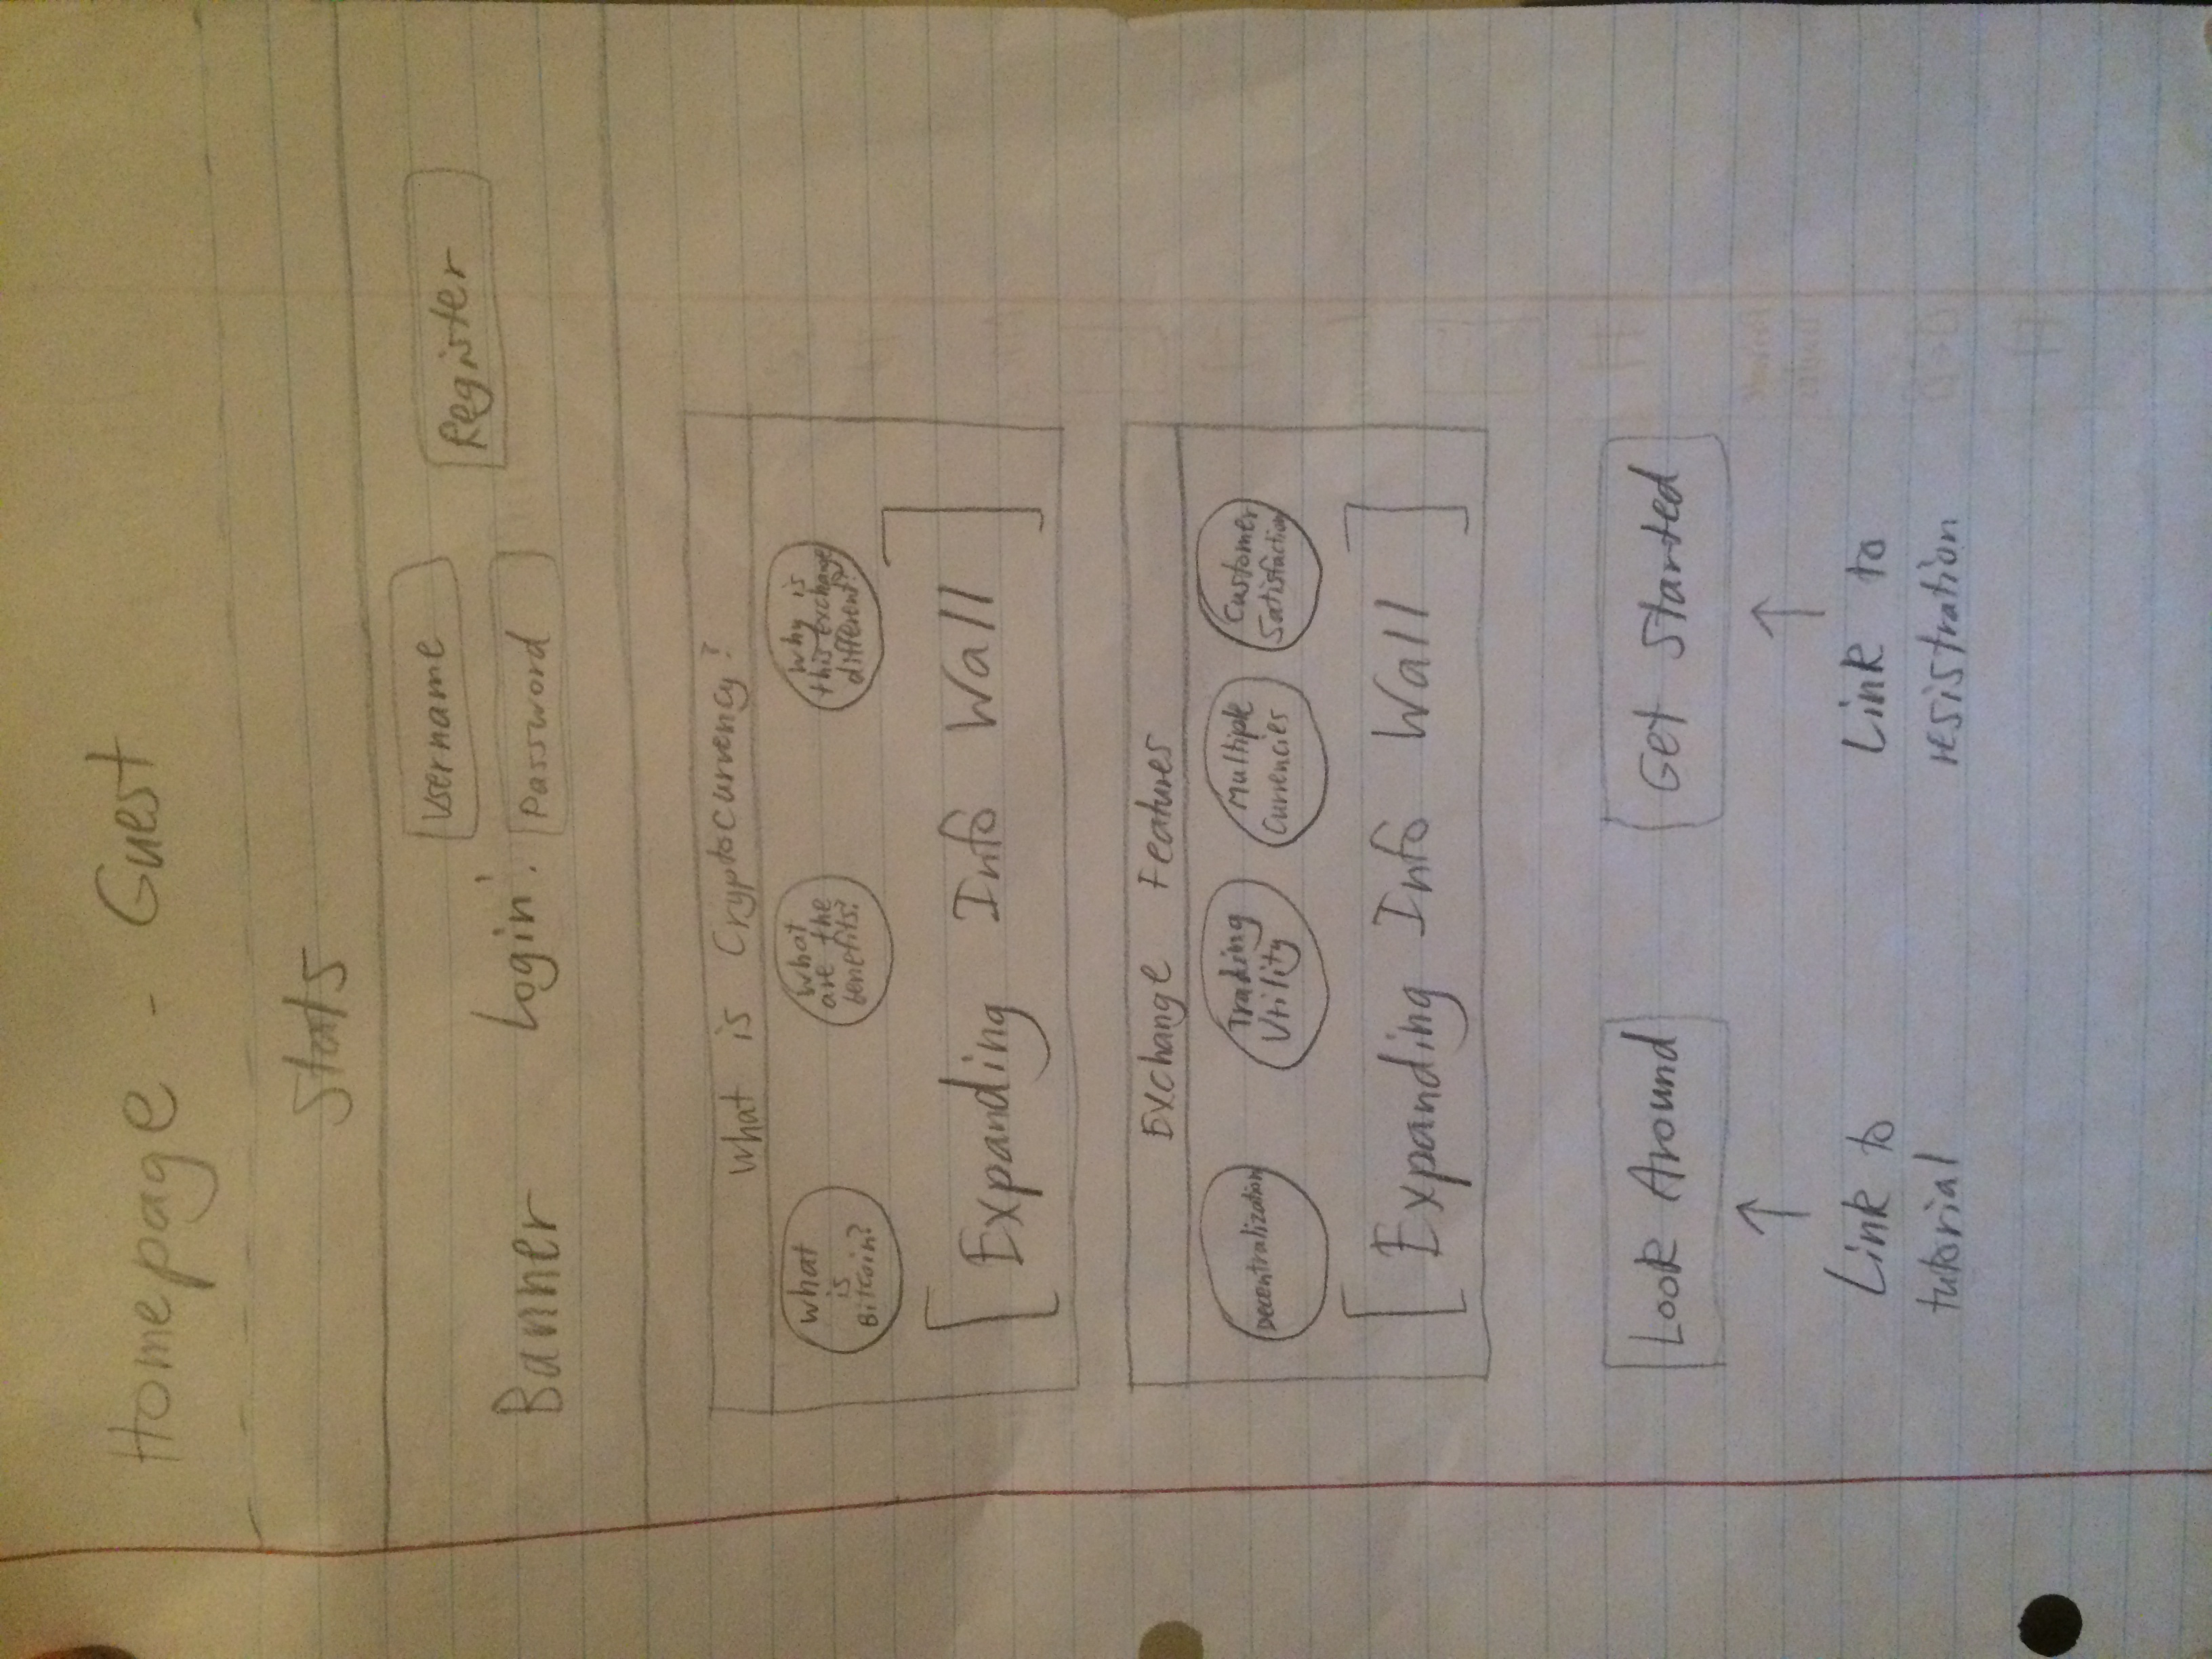 Homepage - Guest
Stats
Username
Register
Banner Login:
Password
What is Cryptocurrency?
What
is
Bitcoin?
What
are the
benefits?
Why is
this exchange
different?
[Expanding Info Wall]
Exchange Features
Decentralization
Trading
Utility
Multiple
Currencies
Customer
Satisfaction
[Expanding Info Wall]
Look Around
Get Started
↑
↑
Link to
tutorial
Link to
resistration